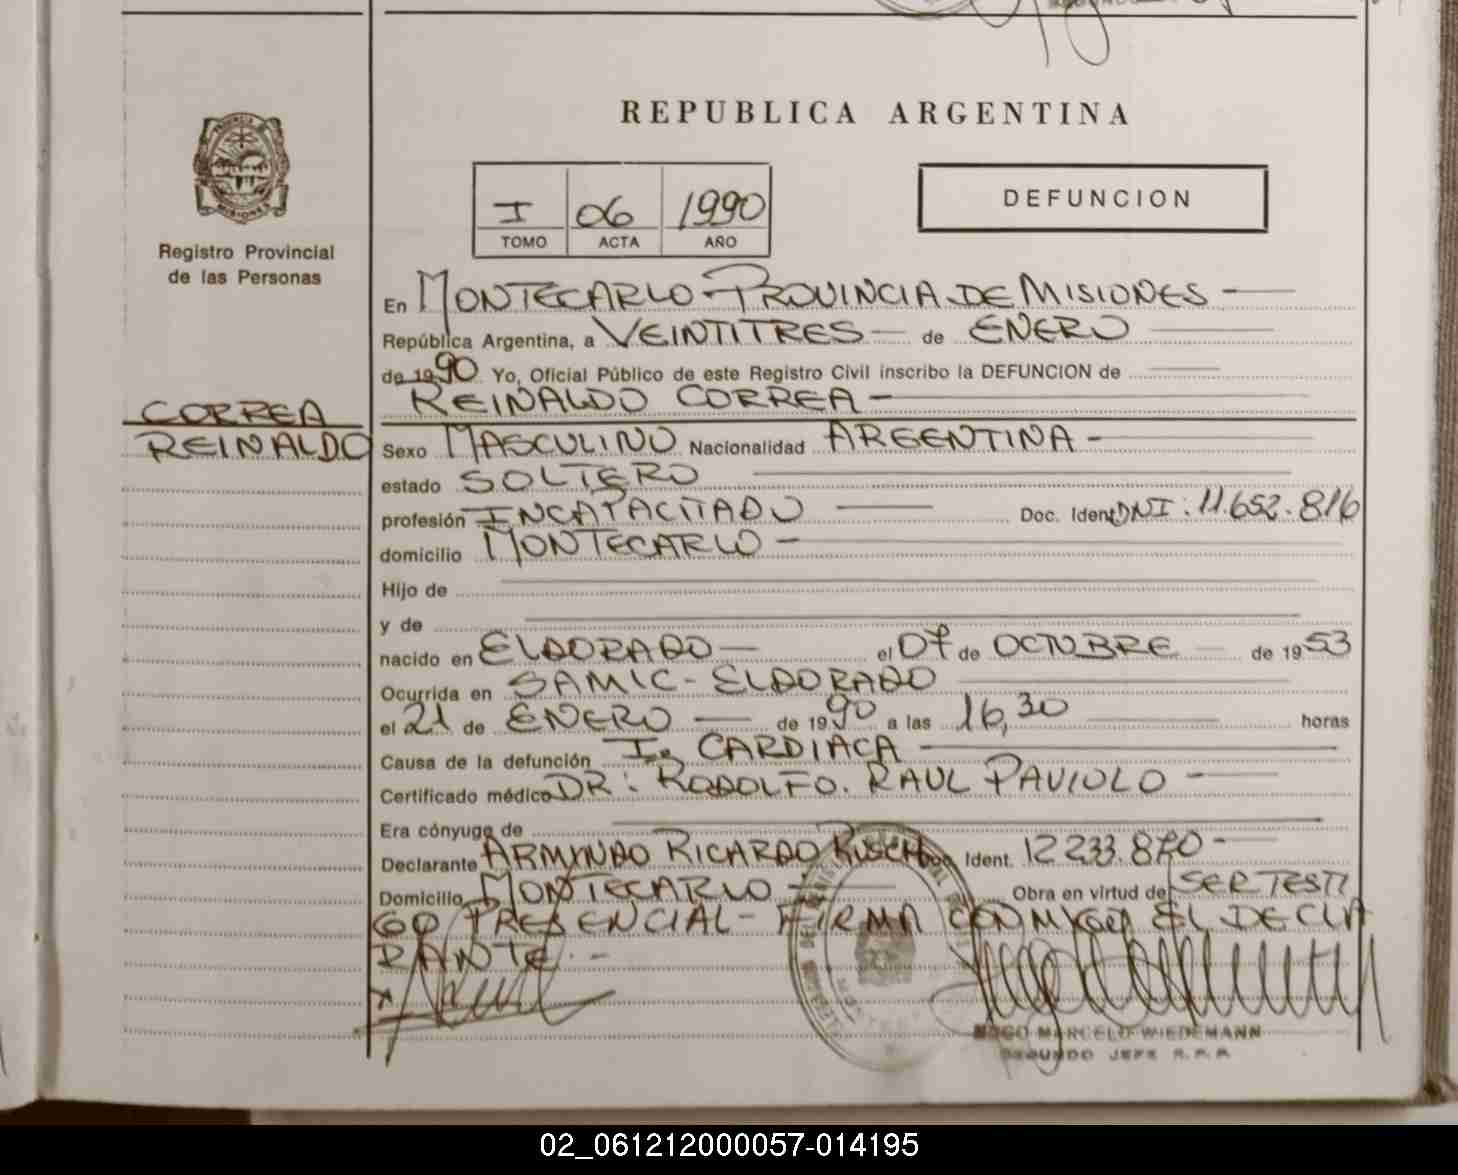 REPUBLICA ARGENTINA
I 06 1990
TOMO ACTA AÑO
DEFUNCION
PROVINCIA DE
MISIONES
Registro Provincial
de las Personas
CORREA
REINALDO
En MONTECARLO - PROVINCIA DE MISIONES —
República Argentina, a VEINTITRES — de ENERO
de 1990 Yo, Oficial Público de este Registro Civil inscribo la DEFUNCION de
REINALDO CORREA —
Sexo MASCULINO Nacionalidad ARGENTINA —
estado SOLTERO
profesión INCAPACITADO — Doc. Ident DNI: 11.652.816
domicilio MONTECARLO —
Hijo de
y de
nacido en ELDORADO — el 07 de OCTUBRE — de 1953
Ocurrida en SAMIC - ELDORADO
el 21 de ENERO — de 1990 a las 16,30 horas
Causa de la defunción I. CARDIACA —
Certificado médico DR: RODOLFO. RAUL PAVIOLO —
Era cónyuge de
Declarante ARMINDO RICARDO Doc. Ident. 12 233.870 -
Domicilio MONTECARLO — Obra en virtud de SER TESTI
GO PRESENCIAL - FIRMA CONMIGO EL DECLA
RANTE. -
HUGO MARCELO WIEDEMANN
SEGUNDO JEFE R.P.P.
02_061212000057-014195